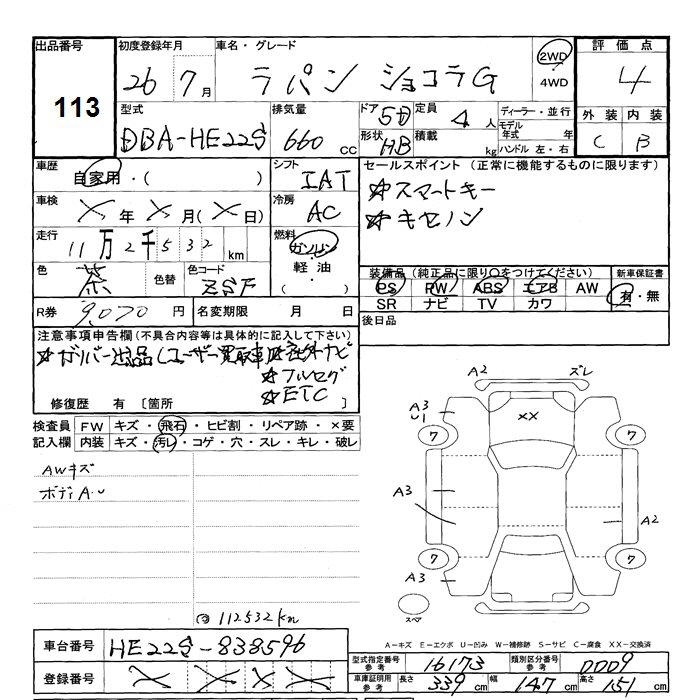 出品番号 初度登録年月 車名・グレード 評価点
113 26 7月 ラパン ショコラG 2WD 4WD 4
型式 排気量 ドア 5D 定員 4人 ディーラー・並行 外装 内装
DBA-HE22S 660cc 形状 HB 積載 kg モデル年式 年 ハンドル 左・右 C B
車歴 自家用・( ) シフト IAT セールスポイント (正常に機能するものに限ります)
☆スマートキー
車検 × 年 × 月(×日) 冷房 AC ☆キセノン
走行 11万2千532km 燃料 ガソリン 軽油・( )
色 茶 色替 色コード ZSF 装備品 (純正品に限り○をつけてください) 新車保証書
PS PW ABS エアB AW 有・無
SR ナビ TV カワ
R券 9,070円 名変期限 月 日 後日品
注意事項申告欄(不具合内容等は具体的に記入して下さい)
☆ガリバー出品(ユーザー買取車) ☆社外ナビ
☆フルセグ
☆ETC
修復歴 有 [箇所 ]
検査員 FW キズ・飛石・ヒビ割・リペア跡・×要
記入欄 内装 キズ・汚し・コゲ・穴・スレ・キレ・破レ
AWキズ
ボディA・U
112532km
A2 ズレ
A3 U1 XX
7 7
A3 A2
7 7
A3
スペア
A-キズ E-エクボ U-凹み W-補修跡 S-サビ C-腐食 XX-交換済
車台番号 HE22S-838596 型式指定番号 参考 16173 類別区分番号 参考 0009
登録番号 × × × × 車庫証明用 参考 長さ 339cm 幅 147cm 高さ 151cm